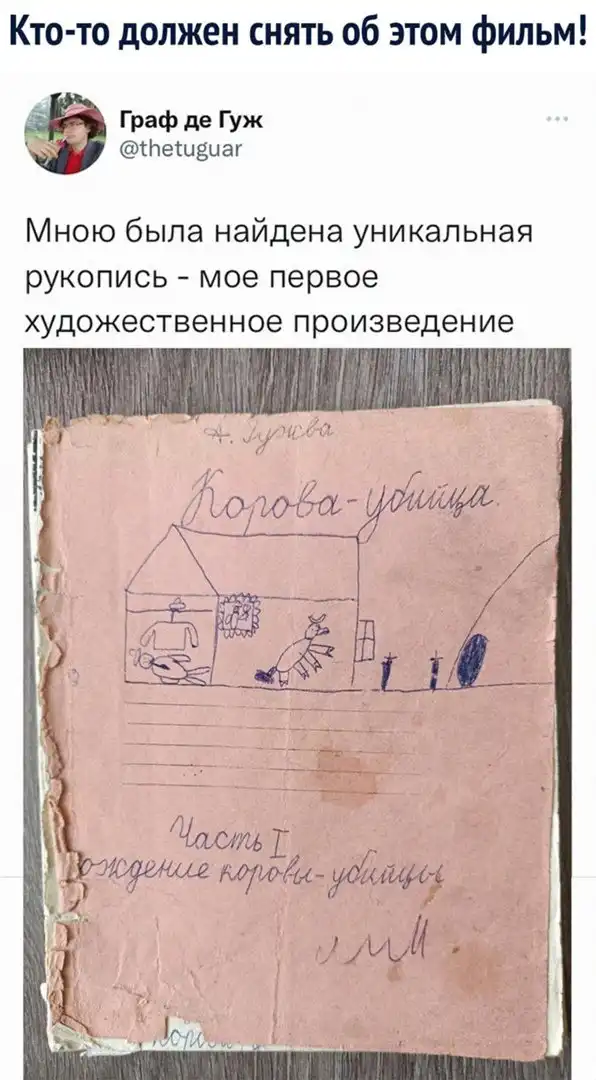 Кто-то должен снять об этом фильм!
Граф де Гуж
@thetuguar
Мною была найдена уникальная
рукопись - мое первое
художественное произведение
А. Гужва
Корова-убийца.
Часть I
ождение коровы-убийцы